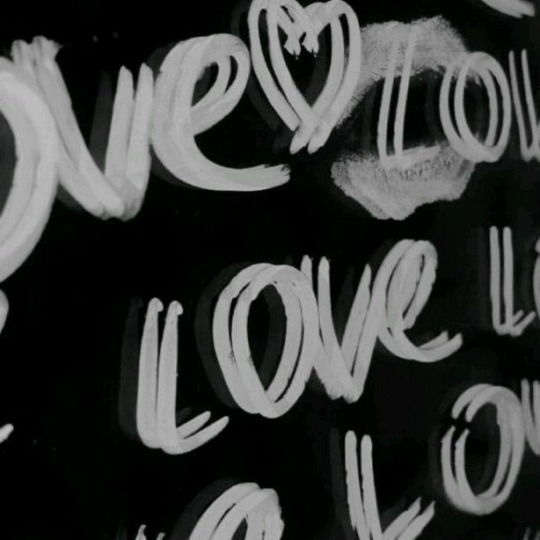 ove Lo
Love L
Lo